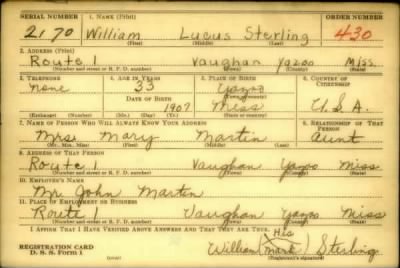 SERIAL NUMBER 1. NAME (Print) ORDER NUMBER
2170 William Lucus Sterling 430
(First) (Middle) (Last)
2. ADDRESS (Print)
Route 1 Vaughan Yazoo Miss
(Number and street or R. F. D. number) (Town) (County) (State)
3. TELEPHONE 4. AGE IN YEARS 5. PLACE OF BIRTH 6. COUNTRY OF CITIZENSHIP
none 33 Yazoo
DATE OF BIRTH (Town or county)
1907 Miss U.S.A.
(Exchange) (Number) (Mo.) (Day) (Yr.) (State or country)
7. NAME OF PERSON WHO WILL ALWAYS KNOW YOUR ADDRESS 8. RELATIONSHIP OF THAT PERSON
Mrs Mary Martin Aunt
(Mr., Mrs., Miss) (First) (Middle) (Last)
9. ADDRESS OF THAT PERSON
Route 1 Vaughan Yazoo Miss
(Number and street or R. F. D. number) (Town) (County) (State)
10. EMPLOYER'S NAME
Mr. John Martin
11. PLACE OF EMPLOYMENT OR BUSINESS
Route 1 Vaughan Yazoo Miss
(Number and street or R. F. D. number) (Town) (County) (State)
I AFFIRM THAT I HAVE VERIFIED ABOVE ANSWERS AND THAT THEY ARE TRUE.
His
REGISTRATION CARD William (mark) Sterling
D. S. S. Form 1 (Registrant's signature)